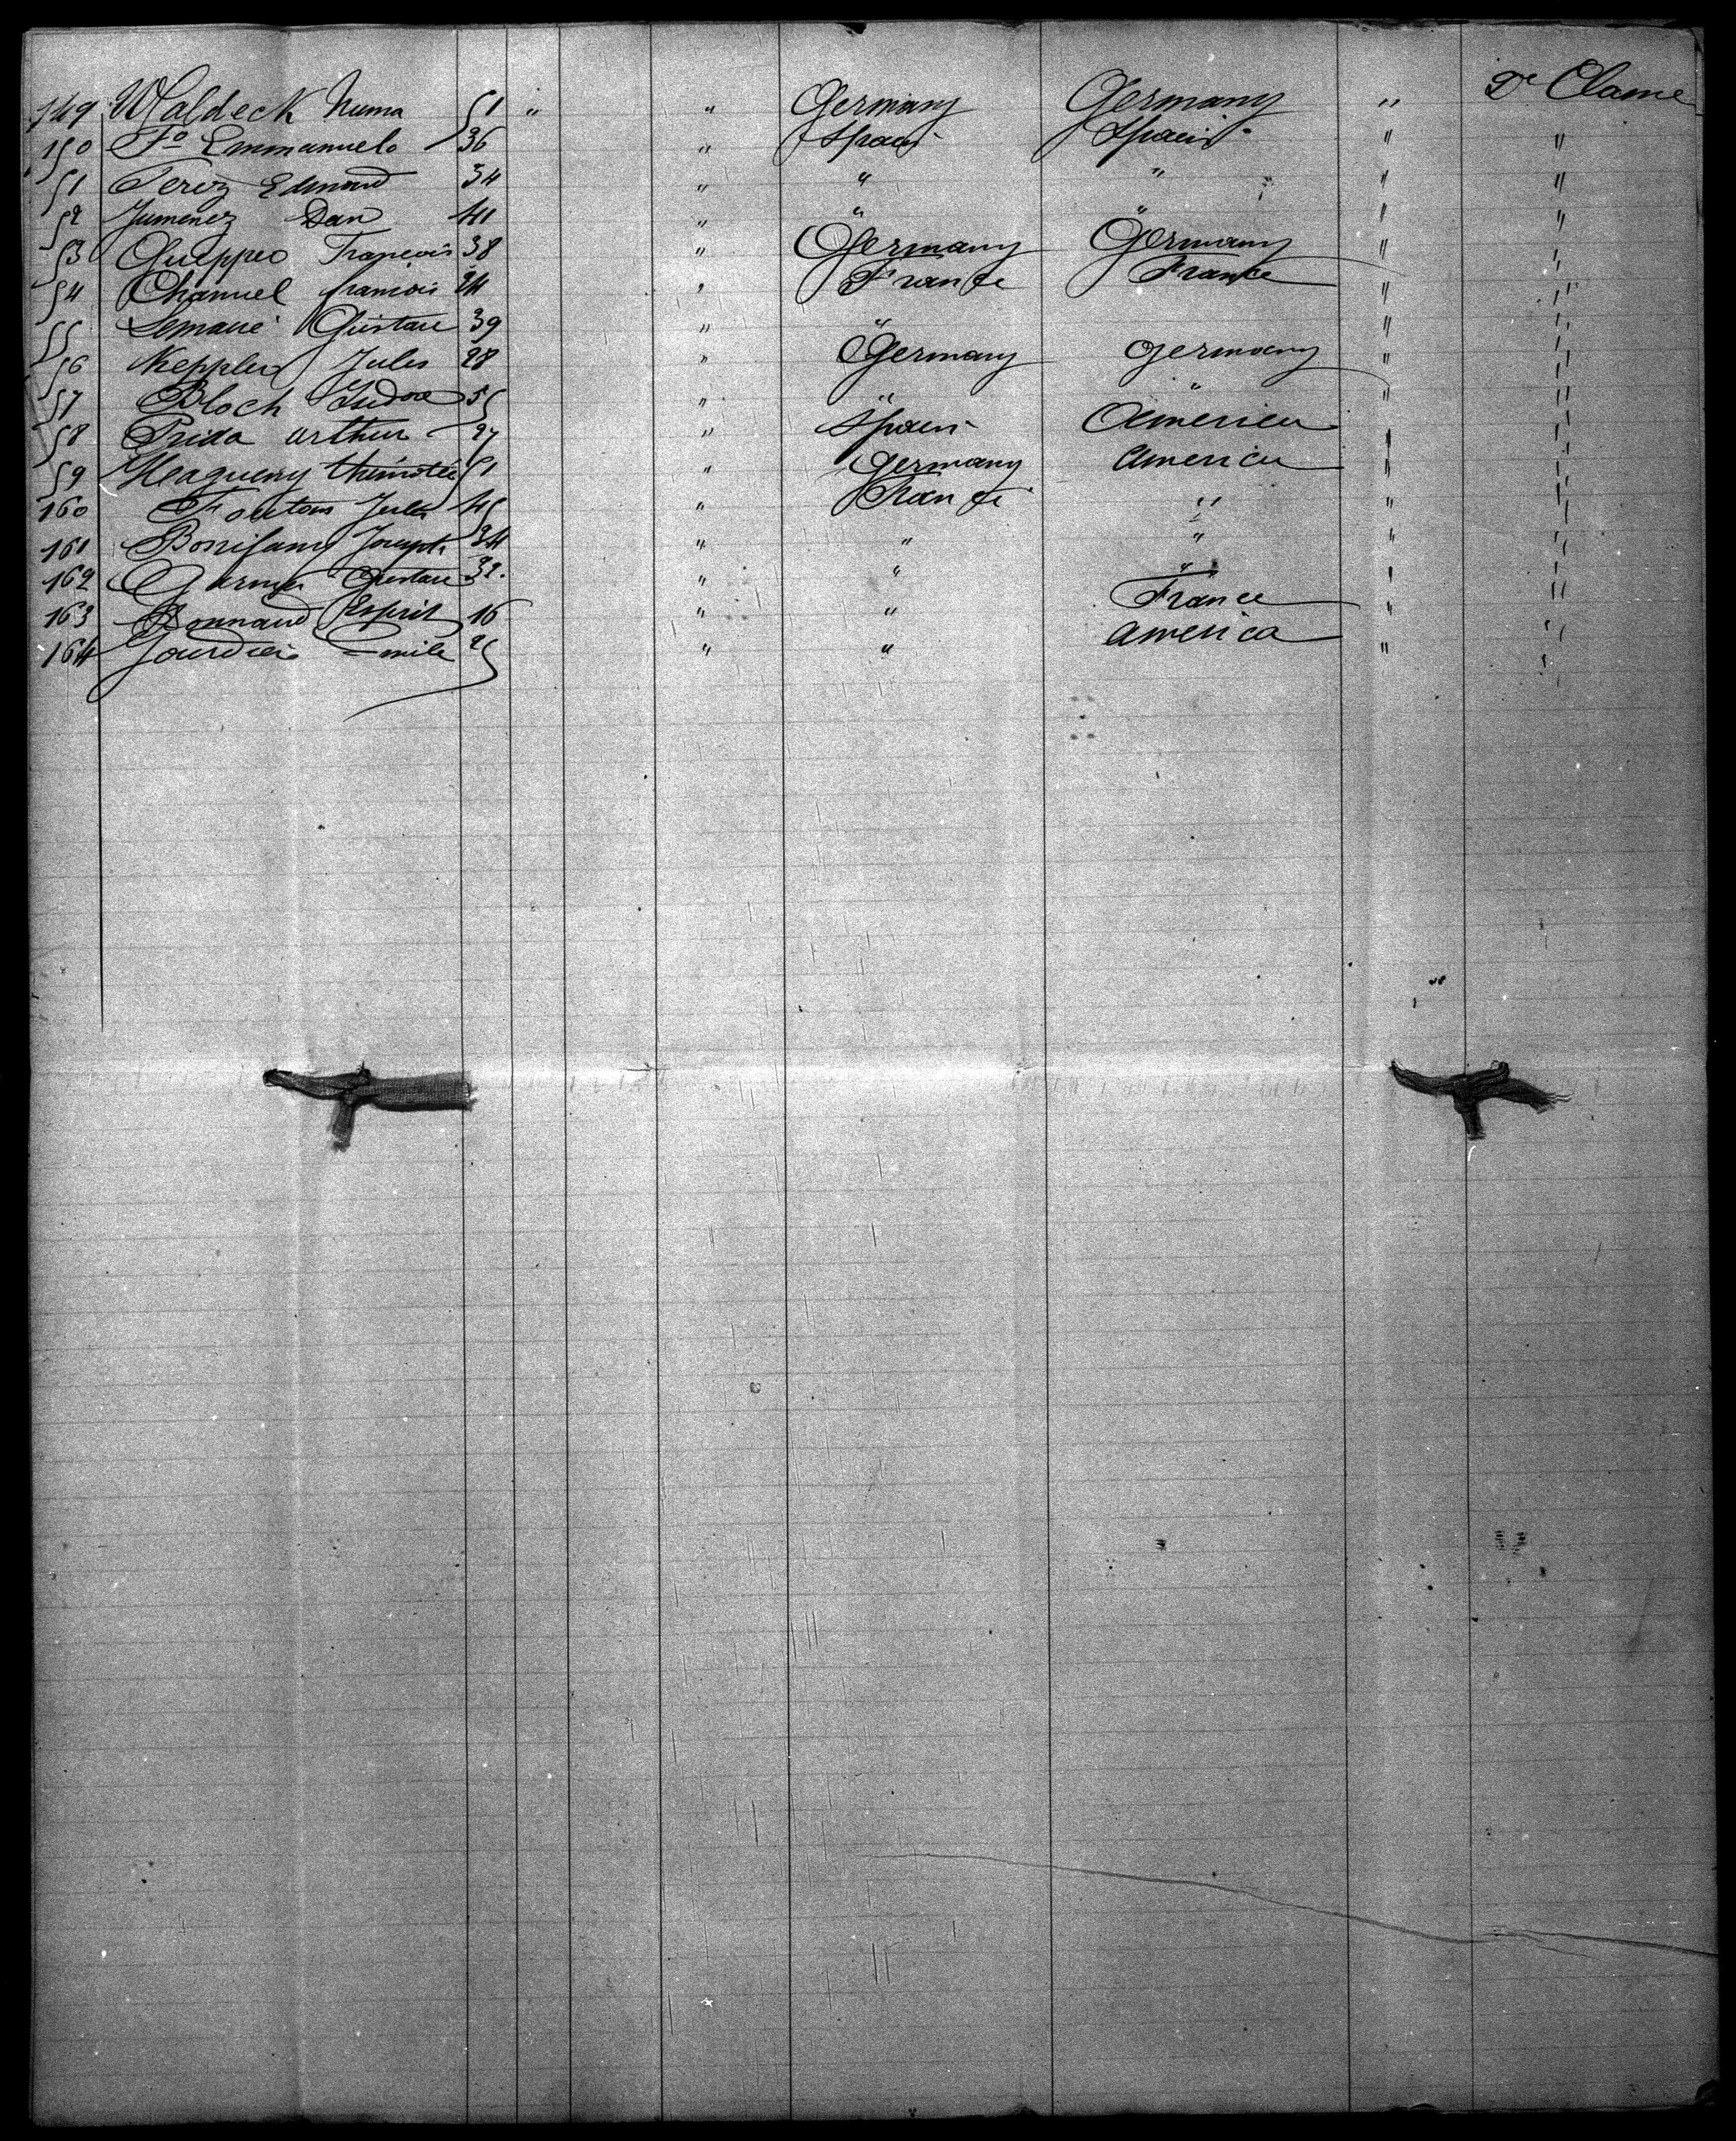 149 Waldeck Numa 51 " " Germany Germany " 2e Classe
150 Fo Emmanuelo 36 " Spain Spain " "
51 Perez Edmond 34 " " " " "
52 Jumenez Dan 41 " " " " "
53 Gueppeo François 38 " Germany Germany " "
54 Chanuel francois 24 " France France " "
55 Lemaue Gustave 39 " " " "
56 Keppler Jules 28 " Germany germany " "
57 Bloch Isidore 55 " " " " "
58 Prida arthur 27 " Spain America " "
59 51 " Germany America " "
160 Foutou Jules 45 " France " " "
161 Joseph 34 " " " " "
162 Garnier Gustave 32 " " " " "
163 Bonnaud Esprit 16 " " France " "
164 Gourdier Emile 25 " " America " "